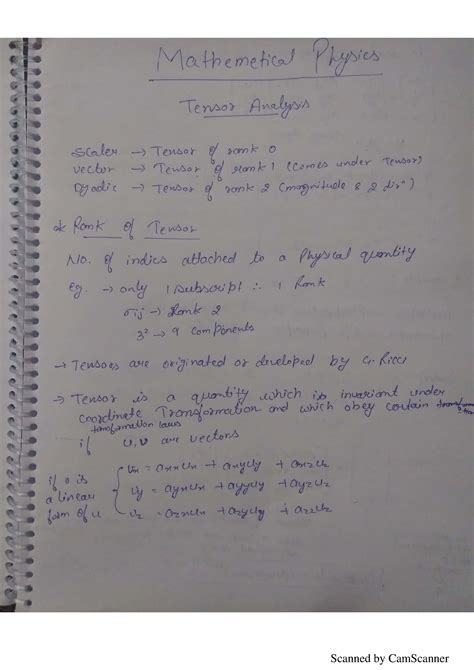 Mathemetical Physics
Tensor Analysis
Scaler → Tensor of rank 0
vector → Tensor of rank 1 (comes under Tensor)
Dyadic → Tensor of rank 2 (magnitude & 2 dirⁿ)
* Rank of Tensor
No. of indices attached to a Physical quantity
Eg. → only 1 subscript ∴ 1 Rank
σij → Rank 2
3² → 9 components
→ Tensors are originated or developed by G. Ricci
→ Tensor is a quantity which is invariant under
coordinate Transformation and which obey certain
transformation laws
if u, v are vectors
if v is
a linear
form of u
vx = axxux + axyuy + axzuz
vy = ayxux + ayyuy + ayzuz
vz = azxux + azyuy + azzuz
Scanned by CamScanner